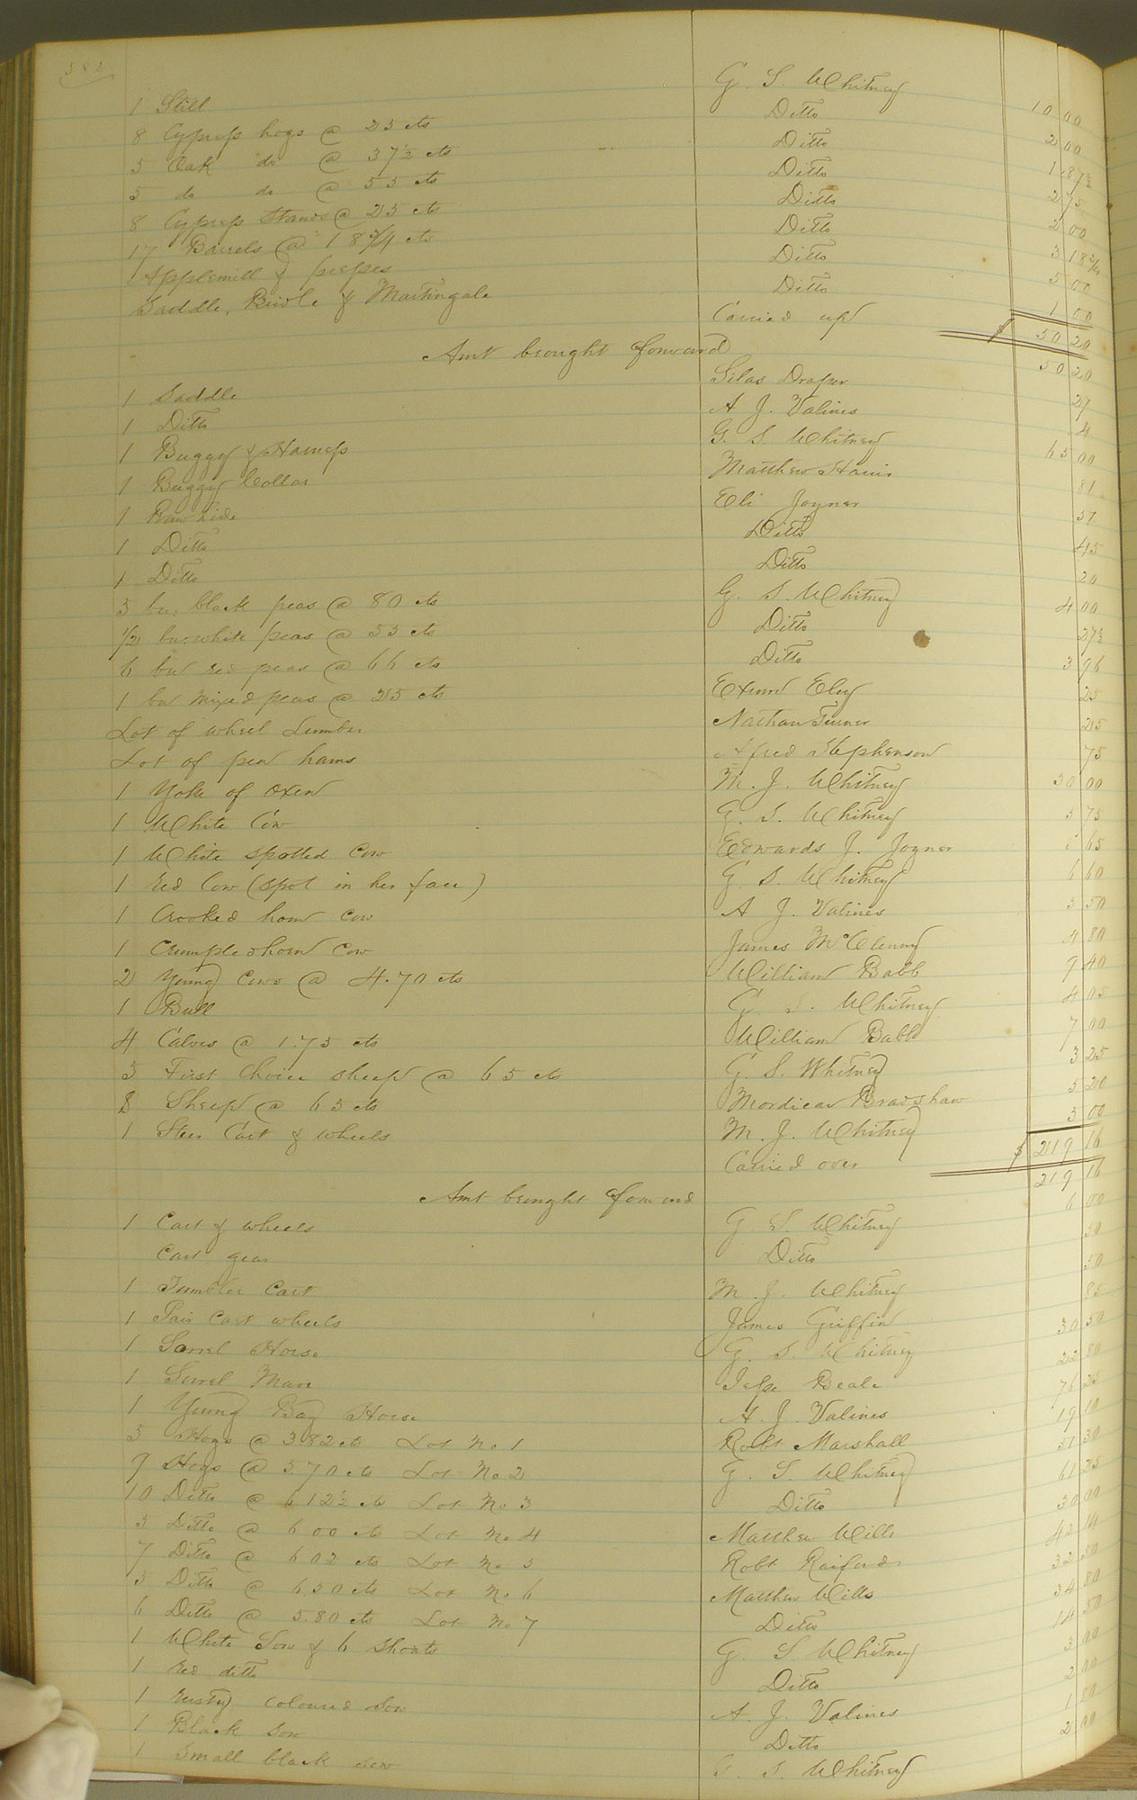 1 Still G. S. Whitney 10 00
8 Cypress hogs @ 25 cts Ditto 2 00
5 Oak do @ 37½ cts Ditto 1 87½
5 do do @ 55 cts Ditto 2 75
8 Cypress Stands @ 25 cts Ditto 2 00
17 Barrels @ 18¾ cts Ditto 3 18¾
1 Applemill & presses Ditto 5 00
Saddle, Bridle & Martingale Ditto 1 00
Carried up $ 50 20
Amt brought forward 50 20
1 Saddle Silas Draper
1 Ditto A J. Valines 4
1 Buggy & Harness G. S. Whitney 65 00
1 Buggy Collar Matthew Harris 81
1 Raw hide Eli Joyner 51
1 Ditto Ditto 45
1 Ditto Ditto 20
5 bu. black peas @ 80 cts G. S. Whitney 4 00
½ bu. white peas @ 55 cts Ditto 27½
6 bu red peas @ 66 cts Ditto 3 96
1 bu mixed peas @ 25 cts Exum Eley 25
Lot of wheel timber Nathan Turner 25
Lot of pew hams Alfred Stephenson 75
1 Yoke of oxen M. J. Whitney 30 00
1 White Cow G. S. Whitney 5 75
1 White spotted cow Edwards J. Joyner 65
1 red Cow (spot in her face) G. S. Whitney 6 60
1 Crooked horn cow A J. Valines 3 50
1 Crumpled horn Cow James McClenny 4 80
2 Young Cows @ 4.70 cts William Babb 9 40
1 Bull G. S. Whitney 4 05
4 Calves @ 1.75 cts William Babb 7 00
5 First Choice sheep @ 65 cts G. S. Whitney 3 25
8 Sheep @ 65 cts Mordicai Bradshaw 5 20
1 Steer Cart & wheels M. J. Whitney 5 00
Carried over $ 219 16
Amt brought forward 219 16
1 Cart & wheels G S. Whitney 6 00
Cart gear Ditto 50
1 Tumbler Cart M. J. Whitney 50
1 Pair Cart wheels James Griffin 85
1 Sorrel Horse G. S. Whitney 30 50
1 Sorrel Mare Jesse Beale 22 80
1 Young Bay Horse A. J. Valines 76 25
5 Hogs @ 382 cts Lot No 1 Robt Marshall 19 10
9 Hogs @ 570 cts Lot No 2 G. S. Whitney 51 30
10 Ditto @ 612½ cts Lot No 3 Ditto 61 25
5 Ditto @ 600 cts Lot No 4 Matthew Wills 30 00
7 Ditto @ 602 cts Lot No 5 Robt Raiford 42 14
5 Ditto @ 650 cts Lot No 6 Matthew Wills 32 50
6 Ditto @ 5.80 cts Lot No 7 Ditto 34 80
1 White Sow & 6 shoats G. S. Whitney 14 50
1 red ditto Ditto 3 00
1 rusty coloured Sow A. J. Valines 2 00
1 Black sow Ditto 1
1 Small black sow G. S. Whitney 2 00